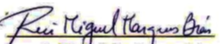 Rui Miguel Marques Brás